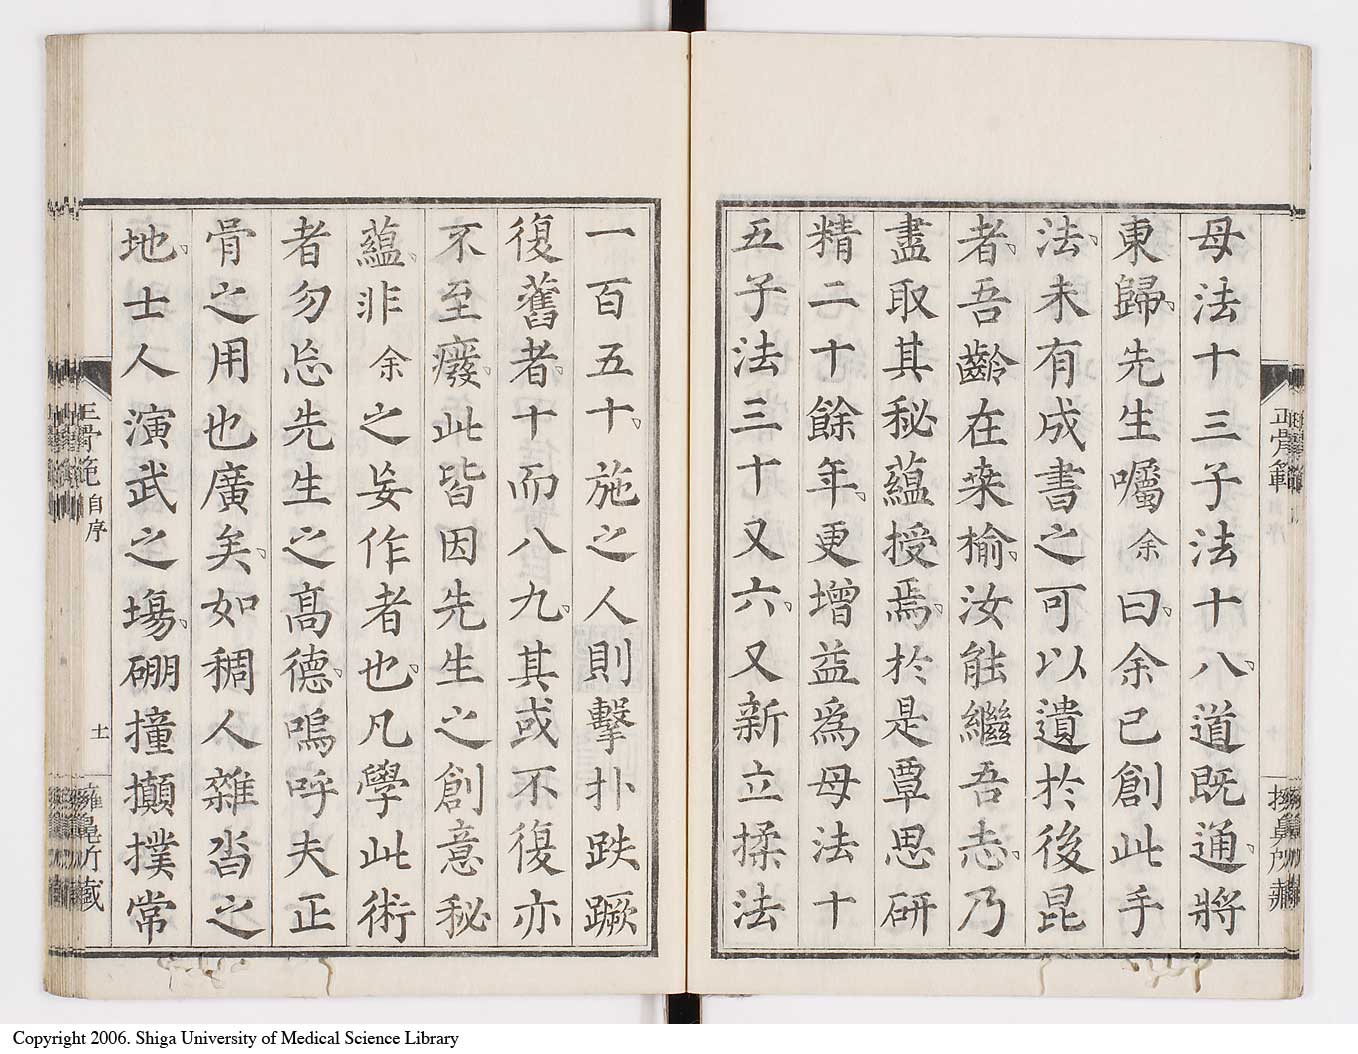 母法十三子法十八道既通將
東歸先生囑余曰余已創此手
法未有成書之可以遺於後昆
者吾齡在桒榆汝能繼吾志乃
盡取其秘蘊授焉於是覃思研
精二十餘年更增益爲母法十
五子法三十又六又新立揉法
正骨範
一百五十施之人則擊扑跌蹶
復舊者十而八九其或不復亦
不至癈此皆因先生之創意秘
蘊非余之妄作者也凡學此術
者勿忘先生之高德嗚呼夫正
骨之用也廣矣如稠人雜沓之
地士人演武之場硼撞攧撲常
正骨範 自序
Copyright 2006. Shiga University of Medical Science Library